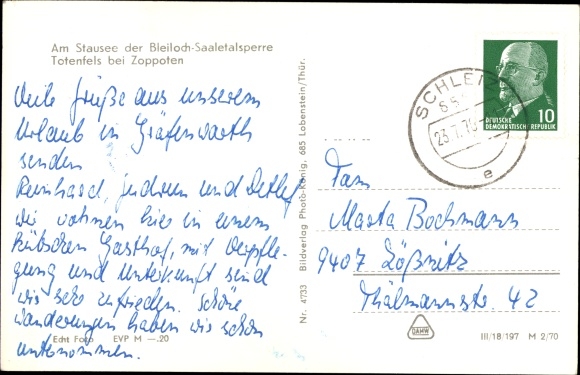 Am Stausee der Bleiloch-Saaletalsperre
Totenfels bei Zoppoten
Viele Grüße aus unserem
Urlaub in Gräfenwarth
senden
Reinhard, Gudrun und Detlef
wir wohnen hier in einem
hübschen Gasthof, mit Verpfle-
gung und Unterkunft sind
wir sehr zufrieden. Schöne
Wanderungen haben wir schon
unternommen.
Echt Foto EVP M —.20
Nr. 4733 Bildverlag Photo-König, 685 Lobenstein/Thür.
SCHLEIZ
23.7.
e
10
DEUTSCHE
DEMOKRATISCHE REPUBLIK
Fam
Marta Bochmann
9407 Lößnitz
Thälmannstr 42
DAMW
III/18/197 M 2/70